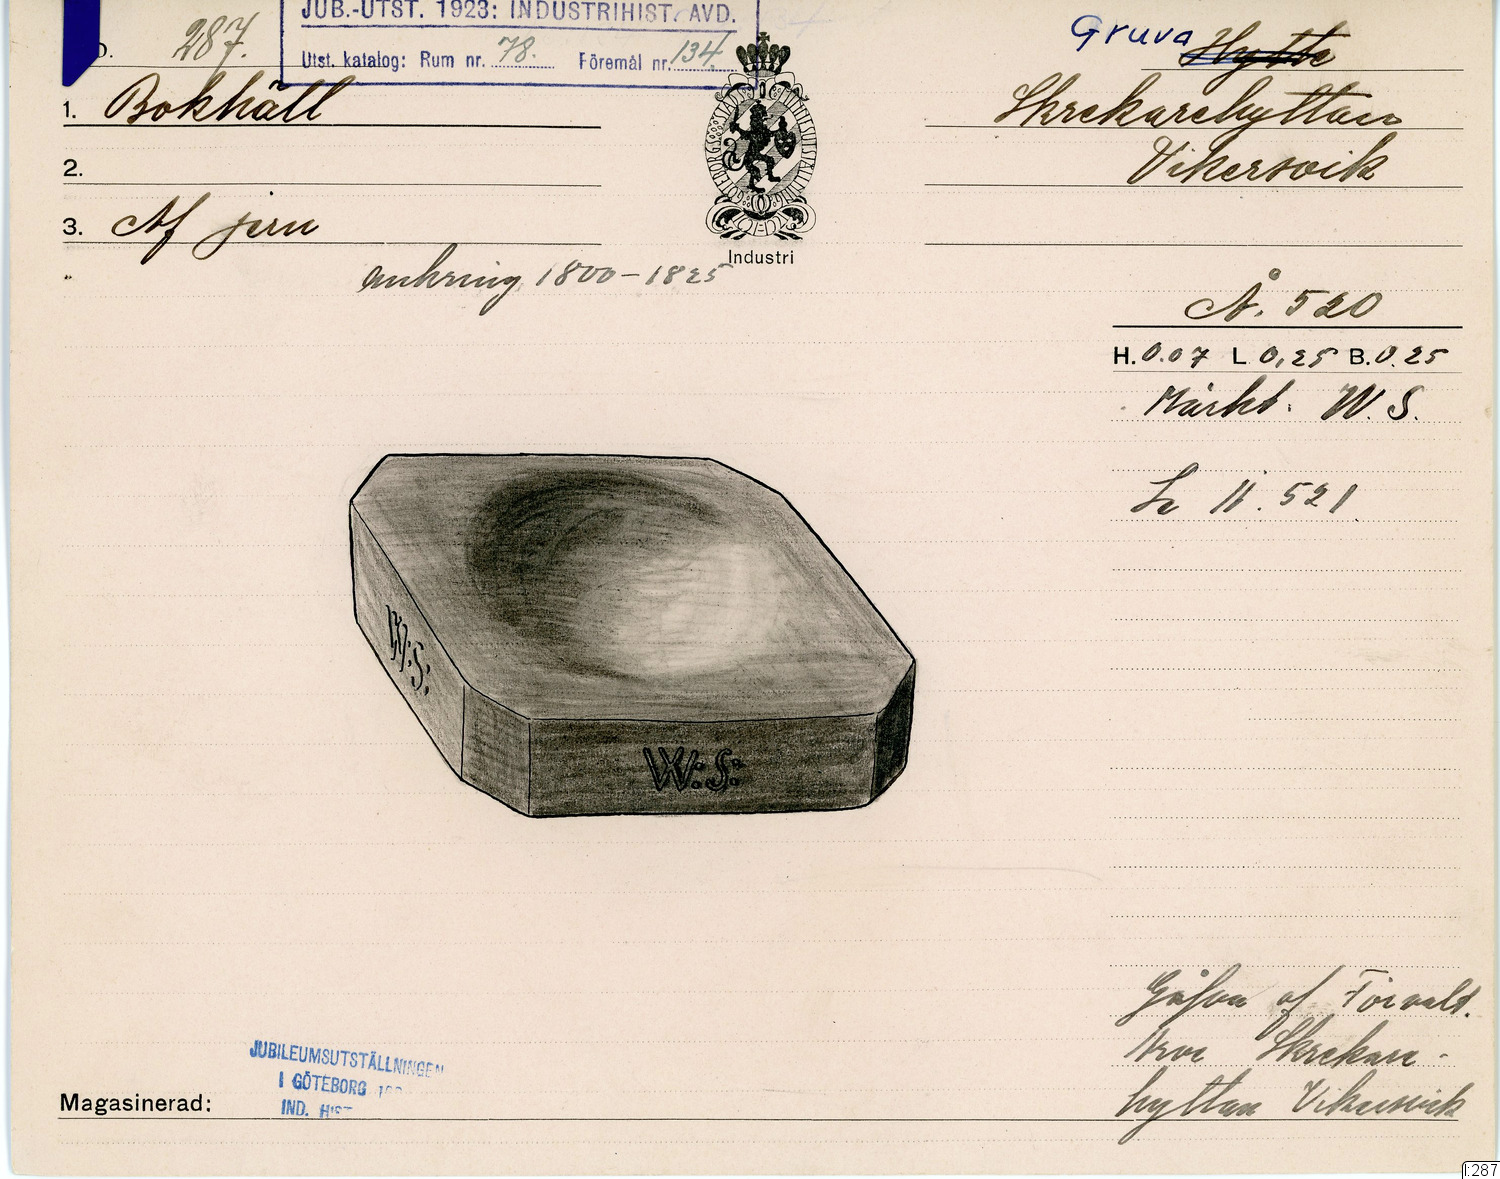 JUB.-UTST. 1923: INDUSTRIHIST. AVD.
287.
Utst. katalog: Rum nr. 78. Föremål nr. 134
Gruva Hytte
1. Bokhäll
Skrekarehyttan
2.
Vikersvik
3. Af jern
Industri
omkring 1800-1825
Å. 520
H. 0.07 L 0,25 B. 0.25
Märkt. W. S.
Se N. 521
W:S:
W:S:
Gåfva af Förvalt.
Skrekare-
hyttan Vikersvik
JUBILEUMSUTSTÄLLNINGEN
I GÖTEBORG
IND. HIST
Magasinerad:
I:287